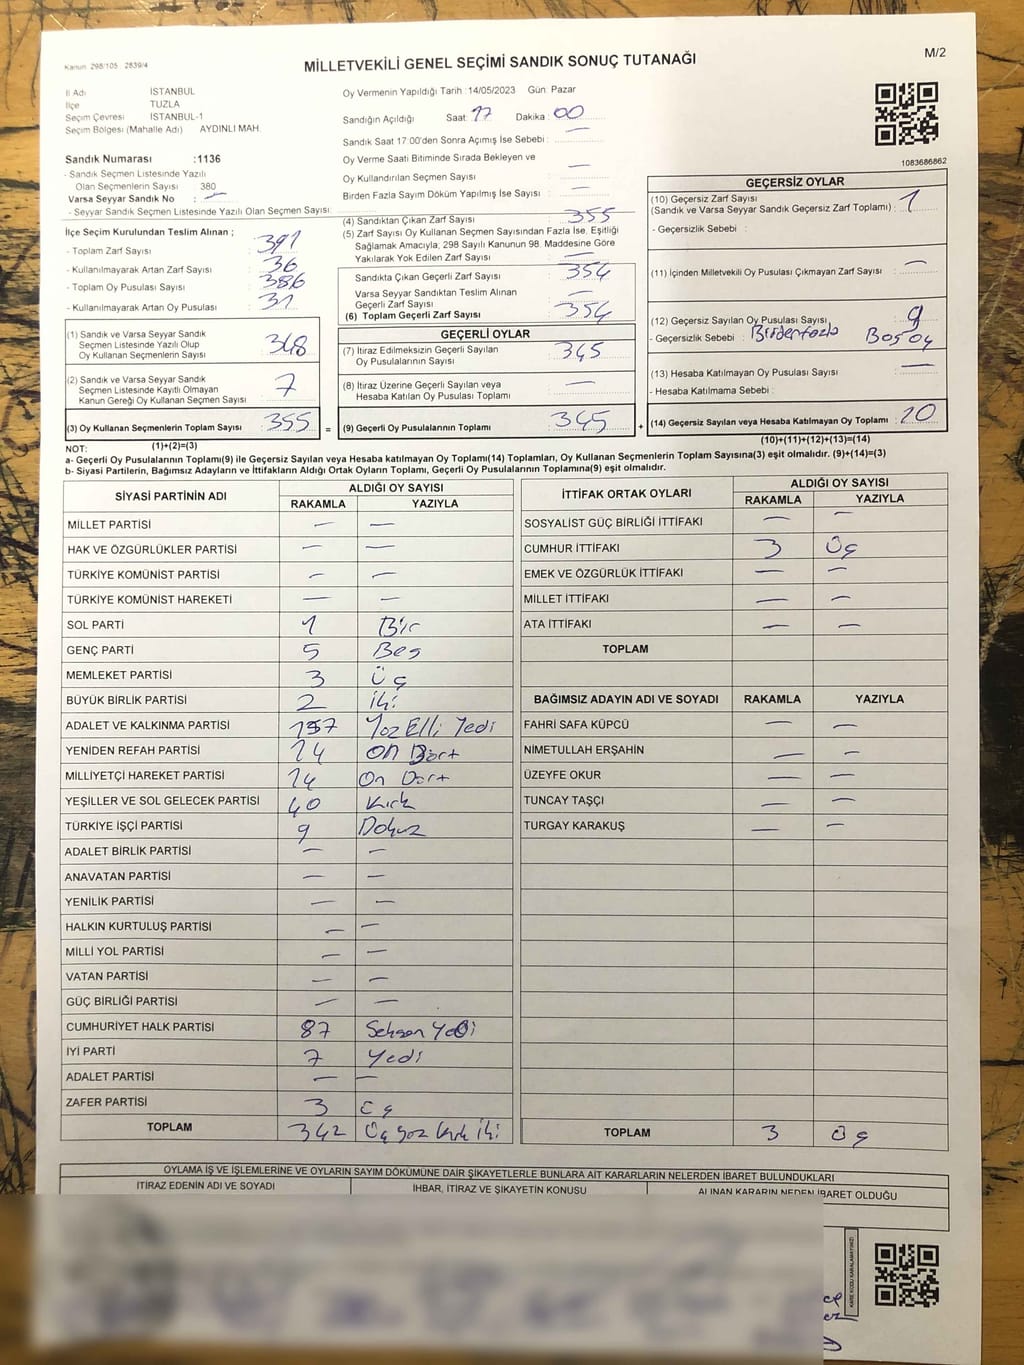 Kanun: 298/105 2839/4
MİLLETVEKİLİ GENEL SEÇİMİ SANDIK SONUÇ TUTANAĞI
M/2
İl Adı İSTANBUL
İlçe TUZLA
Seçim Çevresi İSTANBUL-1
Seçim Bölgesi (Mahalle Adı) AYDINLI MAH.
Oy Vermenin Yapıldığı Tarih :14/05/2023 Gün: Pazar
Sandığın Açıldığı Saat: 17 Dakika: 00
Sandık Saat 17:00'den Sonra Açımış İse Sebebi : —
Oy Verme Saati Bitiminde Sırada Bekleyen ve
Oy Kullandırılan Seçmen Sayısı : —
Birden Fazla Sayım Döküm Yapılmış İse Sayısı : —
1083686862
Sandık Numarası :1136
- Sandık Seçmen Listesinde Yazılı
Olan Seçmenlerin Sayısı 380
Varsa Seyyar Sandık No : —
- Seyyar Sandık Seçmen Listesinde Yazılı Olan Seçmen Sayısı:
İlçe Seçim Kurulundan Teslim Alınan ;
- Toplam Zarf Sayısı : 391
- Kullanılmayarak Artan Zarf Sayısı : 36
- Toplam Oy Pusulası Sayısı : 386
- Kullanılmayarak Artan Oy Pusulası : 31
(1) Sandık ve Varsa Seyyar Sandık
Seçmen Listesinde Yazılı Olup
Oy Kullanan Seçmenlerin Sayısı : 348
(2) Sandık ve Varsa Seyyar Sandık
Seçmen Listesinde Kayıtlı Olmayan
Kanun Gereği Oy Kullanan Seçmen Sayısı : 7
(3) Oy Kullanan Seçmenlerin Toplam Sayısı : 355 =
(1)+(2)=(3)
(4) Sandıktan Çıkan Zarf Sayısı : 355
(5) Zarf Sayısı Oy Kullanan Seçmen Sayısından Fazla İse, Eşitliği
Sağlamak Amacıyla, 298 Sayılı Kanunun 98. Maddesine Göre
Yakılarak Yok Edilen Zarf Sayısı : —
Sandıkta Çıkan Geçerli Zarf Sayısı : 354
Varsa Seyyar Sandıktan Teslim Alınan
Geçerli Zarf Sayısı : —
(6) Toplam Geçerli Zarf Sayısı : 354
GEÇERLİ OYLAR
(7) İtiraz Edilmeksizin Geçerli Sayılan
Oy Pusulalarının Sayısı : 345
(8) İtiraz Üzerine Geçerli Sayılan veya
Hesaba Katılan Oy Pusulası Toplamı : —
(9) Geçerli Oy Pusulalarının Toplamı : 345 +
GEÇERSİZ OYLAR
(10) Geçersiz Zarf Sayısı
(Sandık ve Varsa Seyyar Sandık Geçersiz Zarf Toplamı) : 1
- Geçersizlik Sebebi :
(11) İçinden Milletvekili Oy Pusulası Çıkmayan Zarf Sayısı : —
(12) Geçersiz Sayılan Oy Pusulası Sayısı : 9
- Geçersizlik Sebebi : Birden fazla
(13) Hesaba Katılmayan Oy Pusulası Sayısı : —
- Hesaba Katılmama Sebebi :
(14) Geçersiz Sayılan veya Hesaba Katılmayan Oy Toplamı : 10
(10)+(11)+(12)+(13)=(14)
NOT:
a- Geçerli Oy Pusulalarının Toplamı(9) ile Geçersiz Sayılan veya Hesaba katılmayan Oy Toplamı(14) Toplamları, Oy Kullanan Seçmenlerin Toplam Sayısına(3) eşit olmalıdır. (9)+(14)=(3)
b- Siyasi Partilerin, Bağımsız Adayların ve İttifakların Aldığı Ortak Oyların Toplamı, Geçerli Oy Pusulalarının Toplamına(9) eşit olmalıdır.
SİYASİ PARTİNİN ADI ALDIĞI OY SAYISI
RAKAMLA YAZIYLA
MİLLET PARTİSİ — —
HAK VE ÖZGÜRLÜKLER PARTİSİ — —
TÜRKİYE KOMÜNİST PARTİSİ — —
TÜRKİYE KOMÜNİST HAREKETİ — —
SOL PARTİ 1 Bir
GENÇ PARTİ 5 Beş
MEMLEKET PARTİSİ 3 Üç
BÜYÜK BİRLİK PARTİSİ 2 İki
ADALET VE KALKINMA PARTİSİ 157 Yüz Elli Yedi
YENİDEN REFAH PARTİSİ 14 On Dört
MİLLİYETÇİ HAREKET PARTİSİ 14 On Dört
YEŞİLLER VE SOL GELECEK PARTİSİ 40 Kırk
TÜRKİYE İŞÇİ PARTİSİ 9 Dokuz
ADALET BİRLİK PARTİSİ — —
ANAVATAN PARTİSİ — —
YENİLİK PARTİSİ — —
HALKIN KURTULUŞ PARTİSİ — —
MİLLİ YOL PARTİSİ — —
VATAN PARTİSİ — —
GÜÇ BİRLİĞİ PARTİSİ — —
CUMHURİYET HALK PARTİSİ 87 Seksen Yedi
İYİ PARTİ 7 Yedi
ADALET PARTİSİ — —
ZAFER PARTİSİ 3 Üç
TOPLAM 342 Üç yüz kırk iki
İTTİFAK ORTAK OYLARI ALDIĞI OY SAYISI
RAKAMLA YAZIYLA
SOSYALİST GÜÇ BİRLİĞİ İTTİFAKI — —
CUMHUR İTTİFAKI 3 Üç
EMEK VE ÖZGÜRLÜK İTTİFAKI — —
MİLLET İTTİFAKI — —
ATA İTTİFAKI — —
TOPLAM
BAĞIMSIZ ADAYIN ADI VE SOYADI RAKAMLA YAZIYLA
FAHRİ SAFA KÜPCÜ — —
NİMETULLAH ERŞAHİN — —
ÜZEYFE OKUR — —
TUNCAY TAŞÇI — —
TURGAY KARAKUŞ — —
TOPLAM 3 Üç
OYLAMA İŞ VE İŞLEMLERİNE VE OYLARIN SAYIM DÖKÜMÜNE DAİR ŞİKAYETLERLE BUNLARA AİT KARARLARIN NELERDEN İBARET BULUNDUKLARI
İTİRAZ EDENİN ADI VE SOYADI İHBAR, İTİRAZ VE ŞİKAYETİN KONUSU ALINAN KARARIN NEDEN İBARET OLDUĞU
KARE KODU KARALAMAYINIZ!